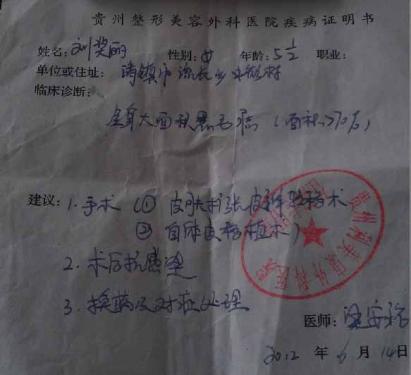 贵州整形美容外科医院疾病证明书
姓名:刘奖丽 性别:女 年龄:5½ 职业:
单位或住址:清镇市流长乡
临床诊断:
全身大面积黑毛痣(面积>70%)
建议:1.手术(① 皮肤扩张皮瓣移转术
② 自体皮移植术)
2.术后抗感染
3.换药及对症处理
贵州 美容外科医院
医师:
2012 年 6 月 14日